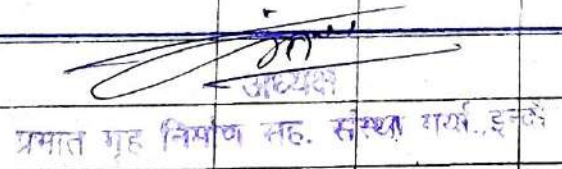 अध्यक्ष
प्रभात गृह निर्माण सह. संस्था मर्या., इन्दौर